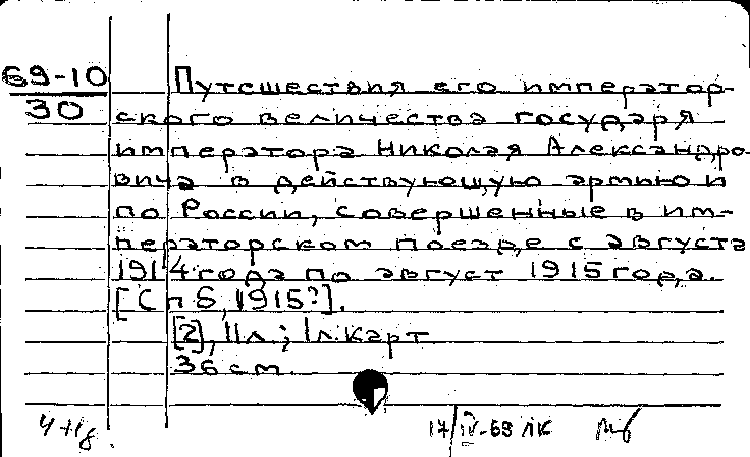 69-10
30
Путешествия его император-
ского величества государя
императора Николая Александро-
вича в действующую армию и
по России, совершенные в им-
ператорском поезде с августа
1914 года по август 1915 года.
[Спб, 1915?].
[2], 11 л.; 1 л. карт
36 см.
17/IV-69 ЛК